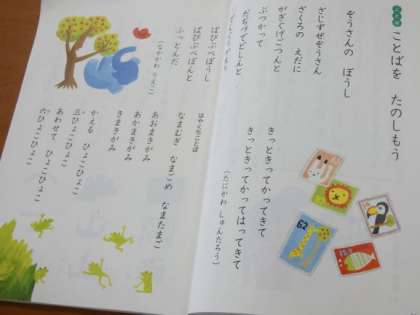 ことばを たのしもう
ぞうさんの ぼうし
ざじずぜぞうさん
ざくろの えだに
がぎぐげごつんと
ぶつかって
だぢづでどしんと
ばびぶべぼうし
ぱぴぷぺぽんと
ふっとんだ
きっときってかってきて
きっときってかってはってきて
(たにかわ しゅんたろう)
はやくちことば
なまむぎ なまごめ なまたまご
あおまきがみ
あかまきがみ
きまきがみ
かえる ひょこひょこ
三ひょこひょこ
あわせて ひょこひょこ
六ひょこひょこ
62